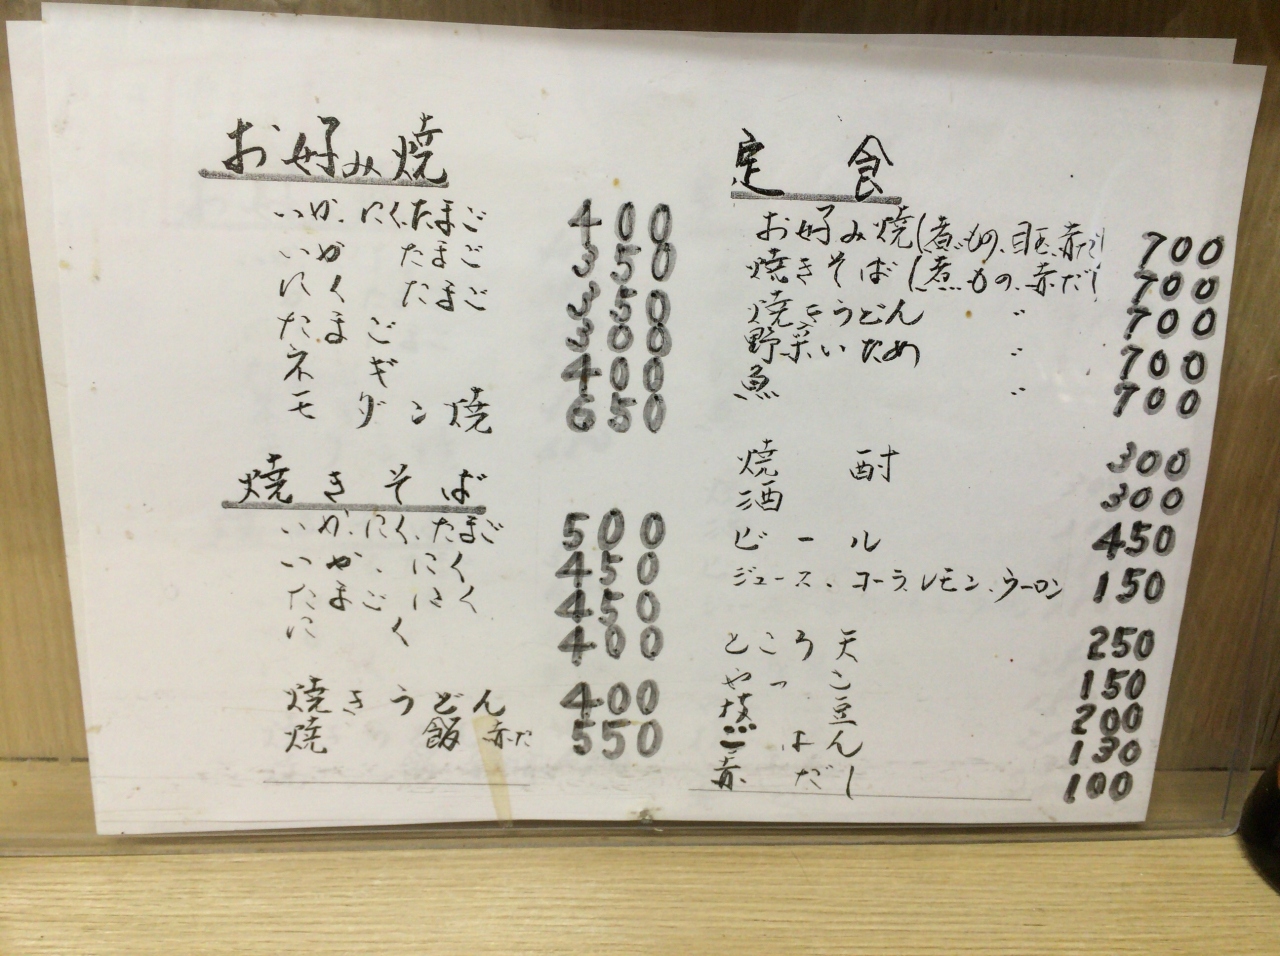 お好み焼
いか.にく.たまご 400
いか たまご 350
にく たまご 350
たまご 300
ネギ 400
モダン焼 650
焼きそば
いか.にく.たまご 500
いか.にく 450
たまご にく 450
にく 400
焼きうどん 400
焼飯 赤だ 550
定食
お好み焼(煮もの、目玉、赤だし 700
焼きそば(煮もの、赤だし 700
焼きうどん 〃 700
野菜いため 〃 700
魚 〃 700
焼酎 300
酒 300
ビール 450
ジュース、コーラ、レモン、ウーロン 150
ところ天 250
やっこ 150
枝豆 200
ごはん 130
赤だし 100